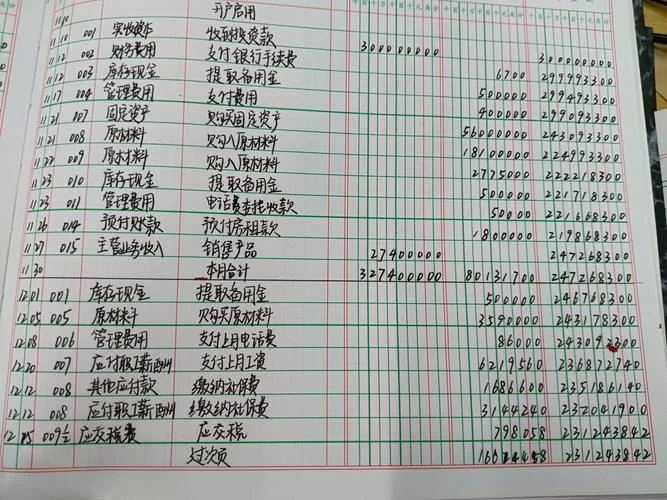 千百十万千百十元角分 千百十万千百十元角分 千百十万千百十元角分
11.10 开户启用
11.10 001 实收资本 收到投资款 300000000 300000000
11.12 002 财务费用 支付银行手续费 6700 299993300
11.12 003 库存现金 提取备用金 500000 299493300
11.17 004 管理费用 支付费用 400000 299093300
11.21 007 固定资产 购买固定资产 56000000 243093300
11.21 008 原材料 购入原材料 18100000 224993300
11.22 009 原材料 购入原材料 2775000 222218300
11.23 010 库存现金 提取备用金 500000 221718300
11.23 011 管理费用 电话费 收款 50000 221668300
11.26 014 预付账款 预付房租款 1800000 219868300
11.27 015 主营业务收入 销售产品 27400000 247268300
11.30 本月合计 327400000 80131700 247268300
12.01 001 库存现金 提取备用金 500000 246768300
12.05 005 原材料 购买原材料 3590000 243178300
12.08 006 管理费用 支付上月电话费 86000 243092300
12.20 007 应付职工薪酬 支付上月工资 6219560 236872740
12.12 008 其他应付款 缴纳社保费 1686600 235186140
12.12 008 应付职工薪酬 缴纳社保费 3144240 232041900
12.15 009½ 应交税费 应交税 798058 231243842
过次页 231243842